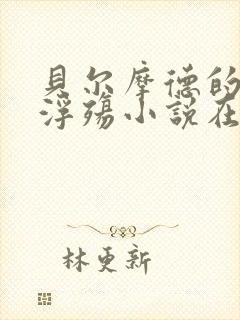 貝尔摩德的
浮殤小説在
林更新